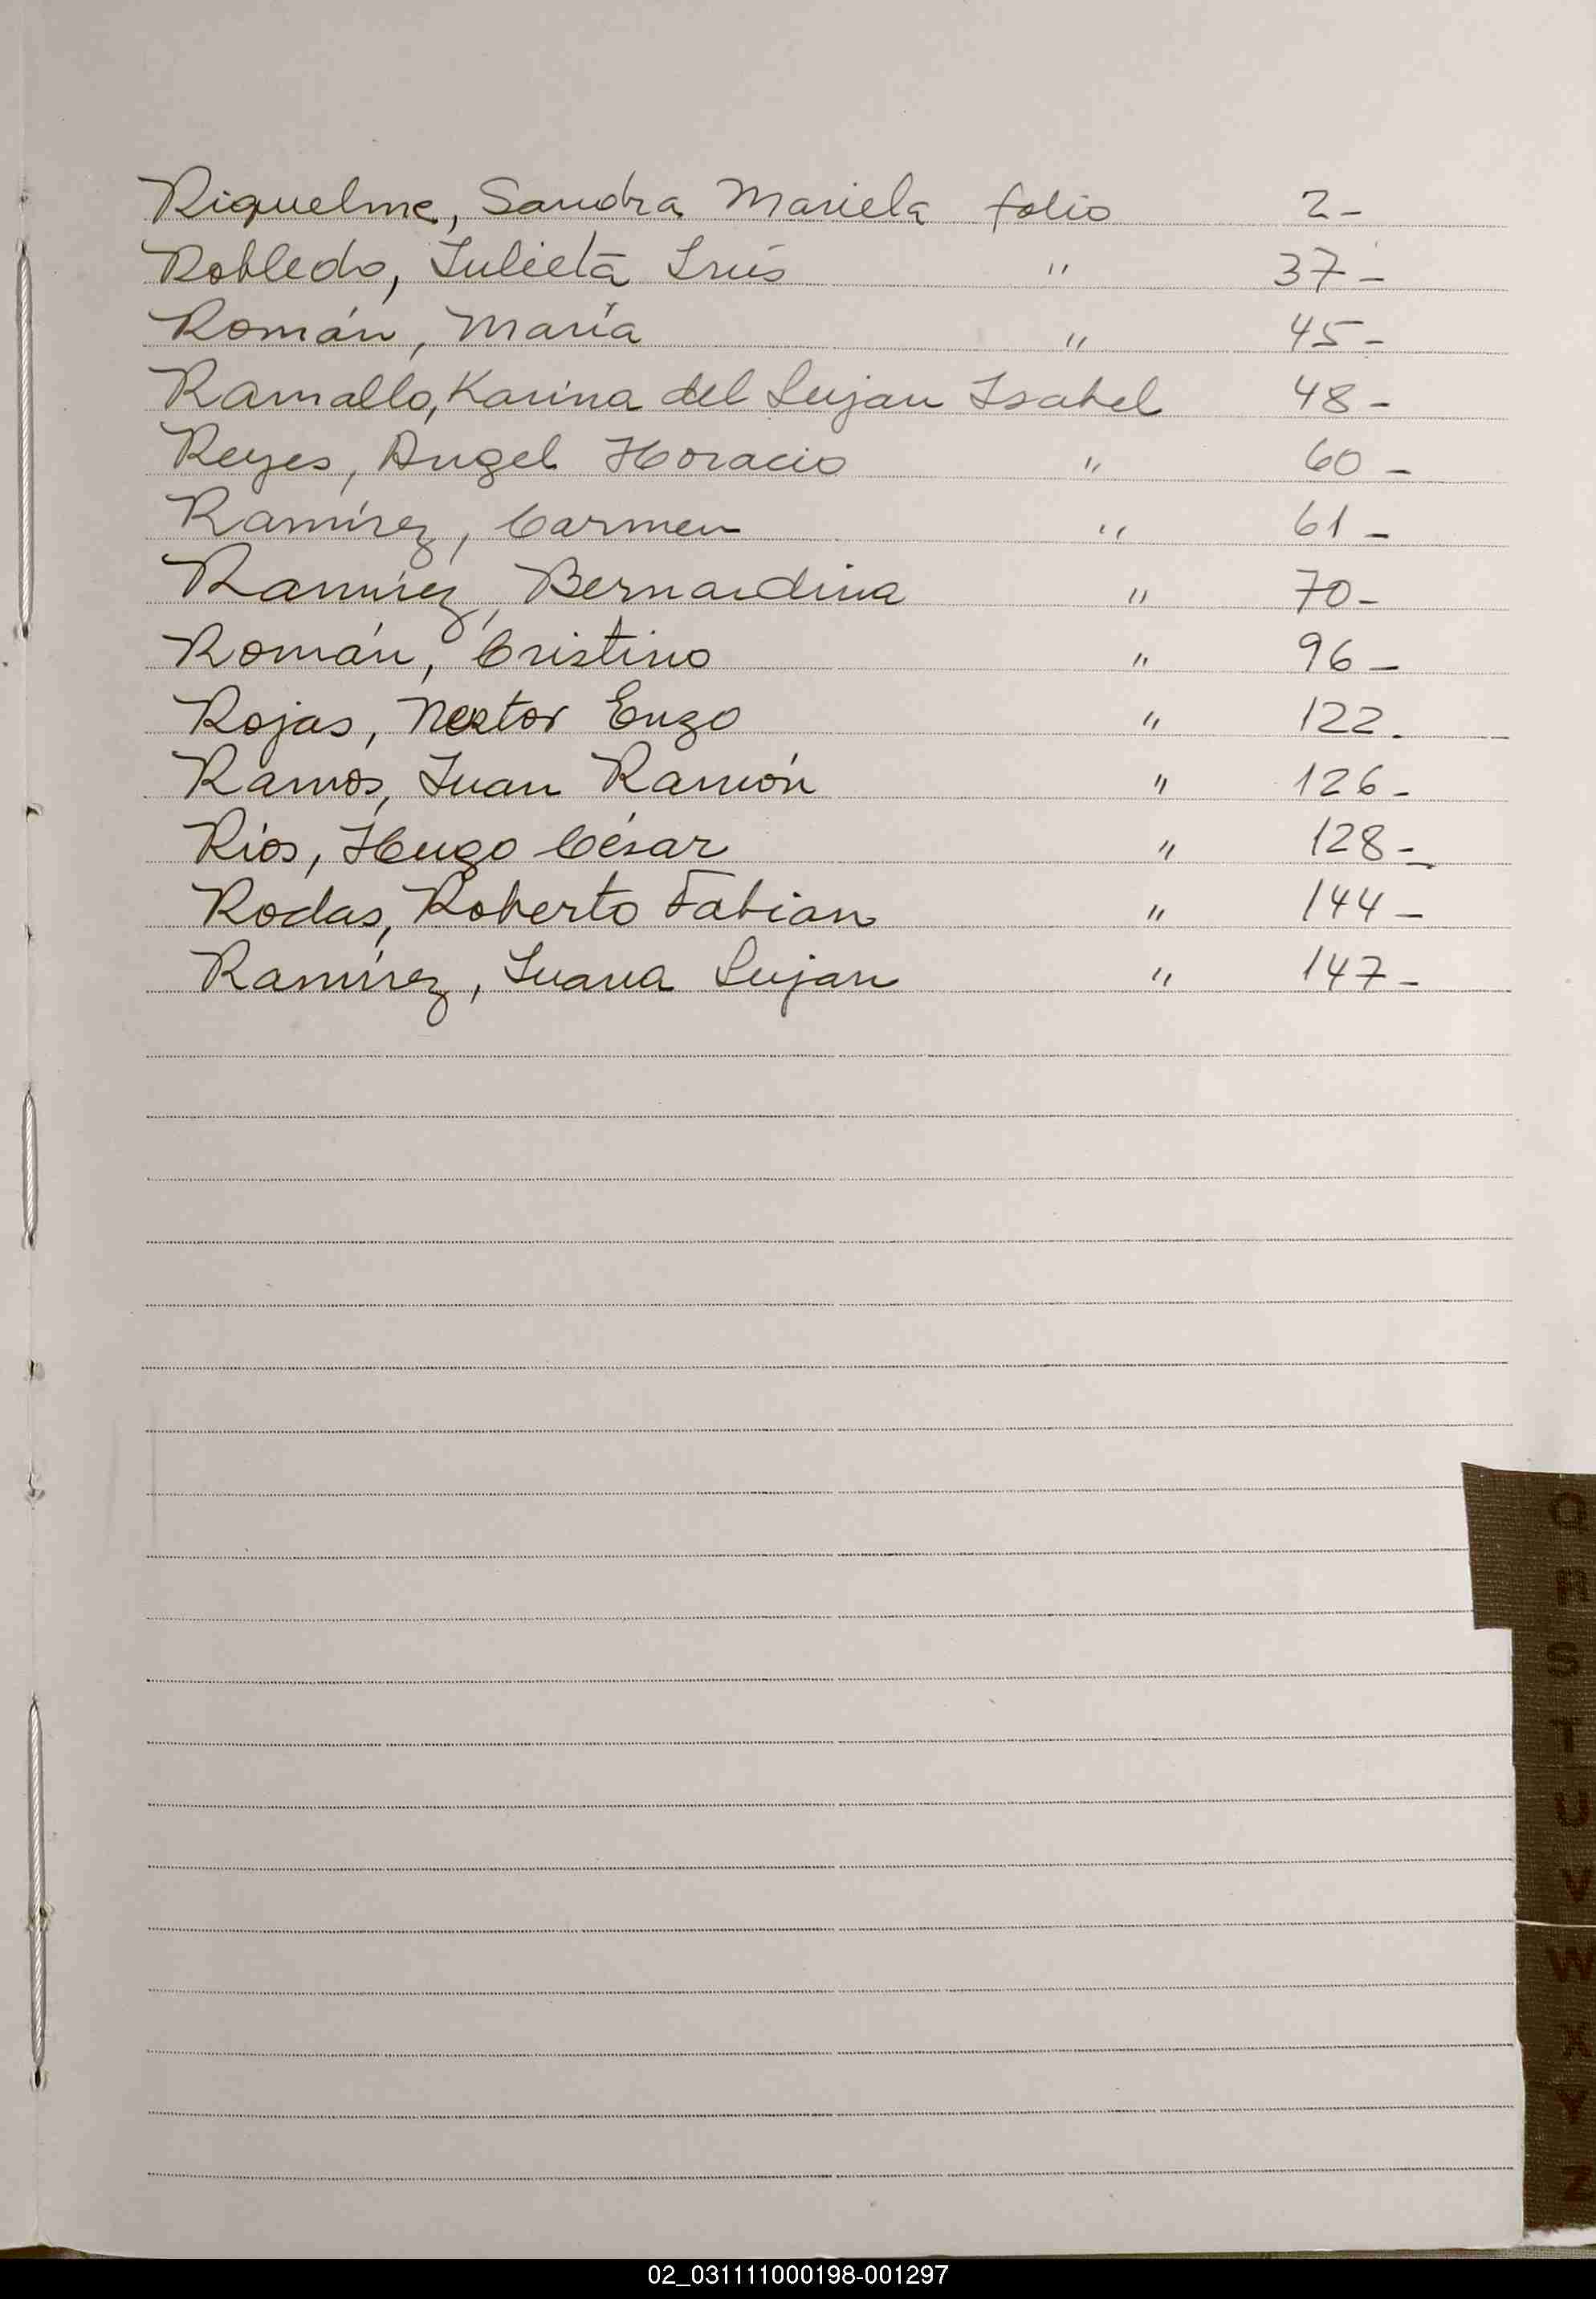 Riquelme, Sandra Mariela folio 2-
Robledo, Julieta Inés " 37-
Román, María " 45-
Ramallo, Karina del Lujan Isabel 48-
Reyes, Angel Horacio " 60-
Ramírez, Carmen " 61-
Ramírez, Bernardina " 70-
Román, Cristino " 96-
Rojas, Nestor Enzo " 122.
Ramos, Juan Ramón " 126-
Ríos, Hugo César " 128-
Rodas, Roberto Fabian " 144-
Ramírez, Juana Lujan " 147-
Q
R
S
T
U
V
W
X
Y
Z
02_031111000198-001297